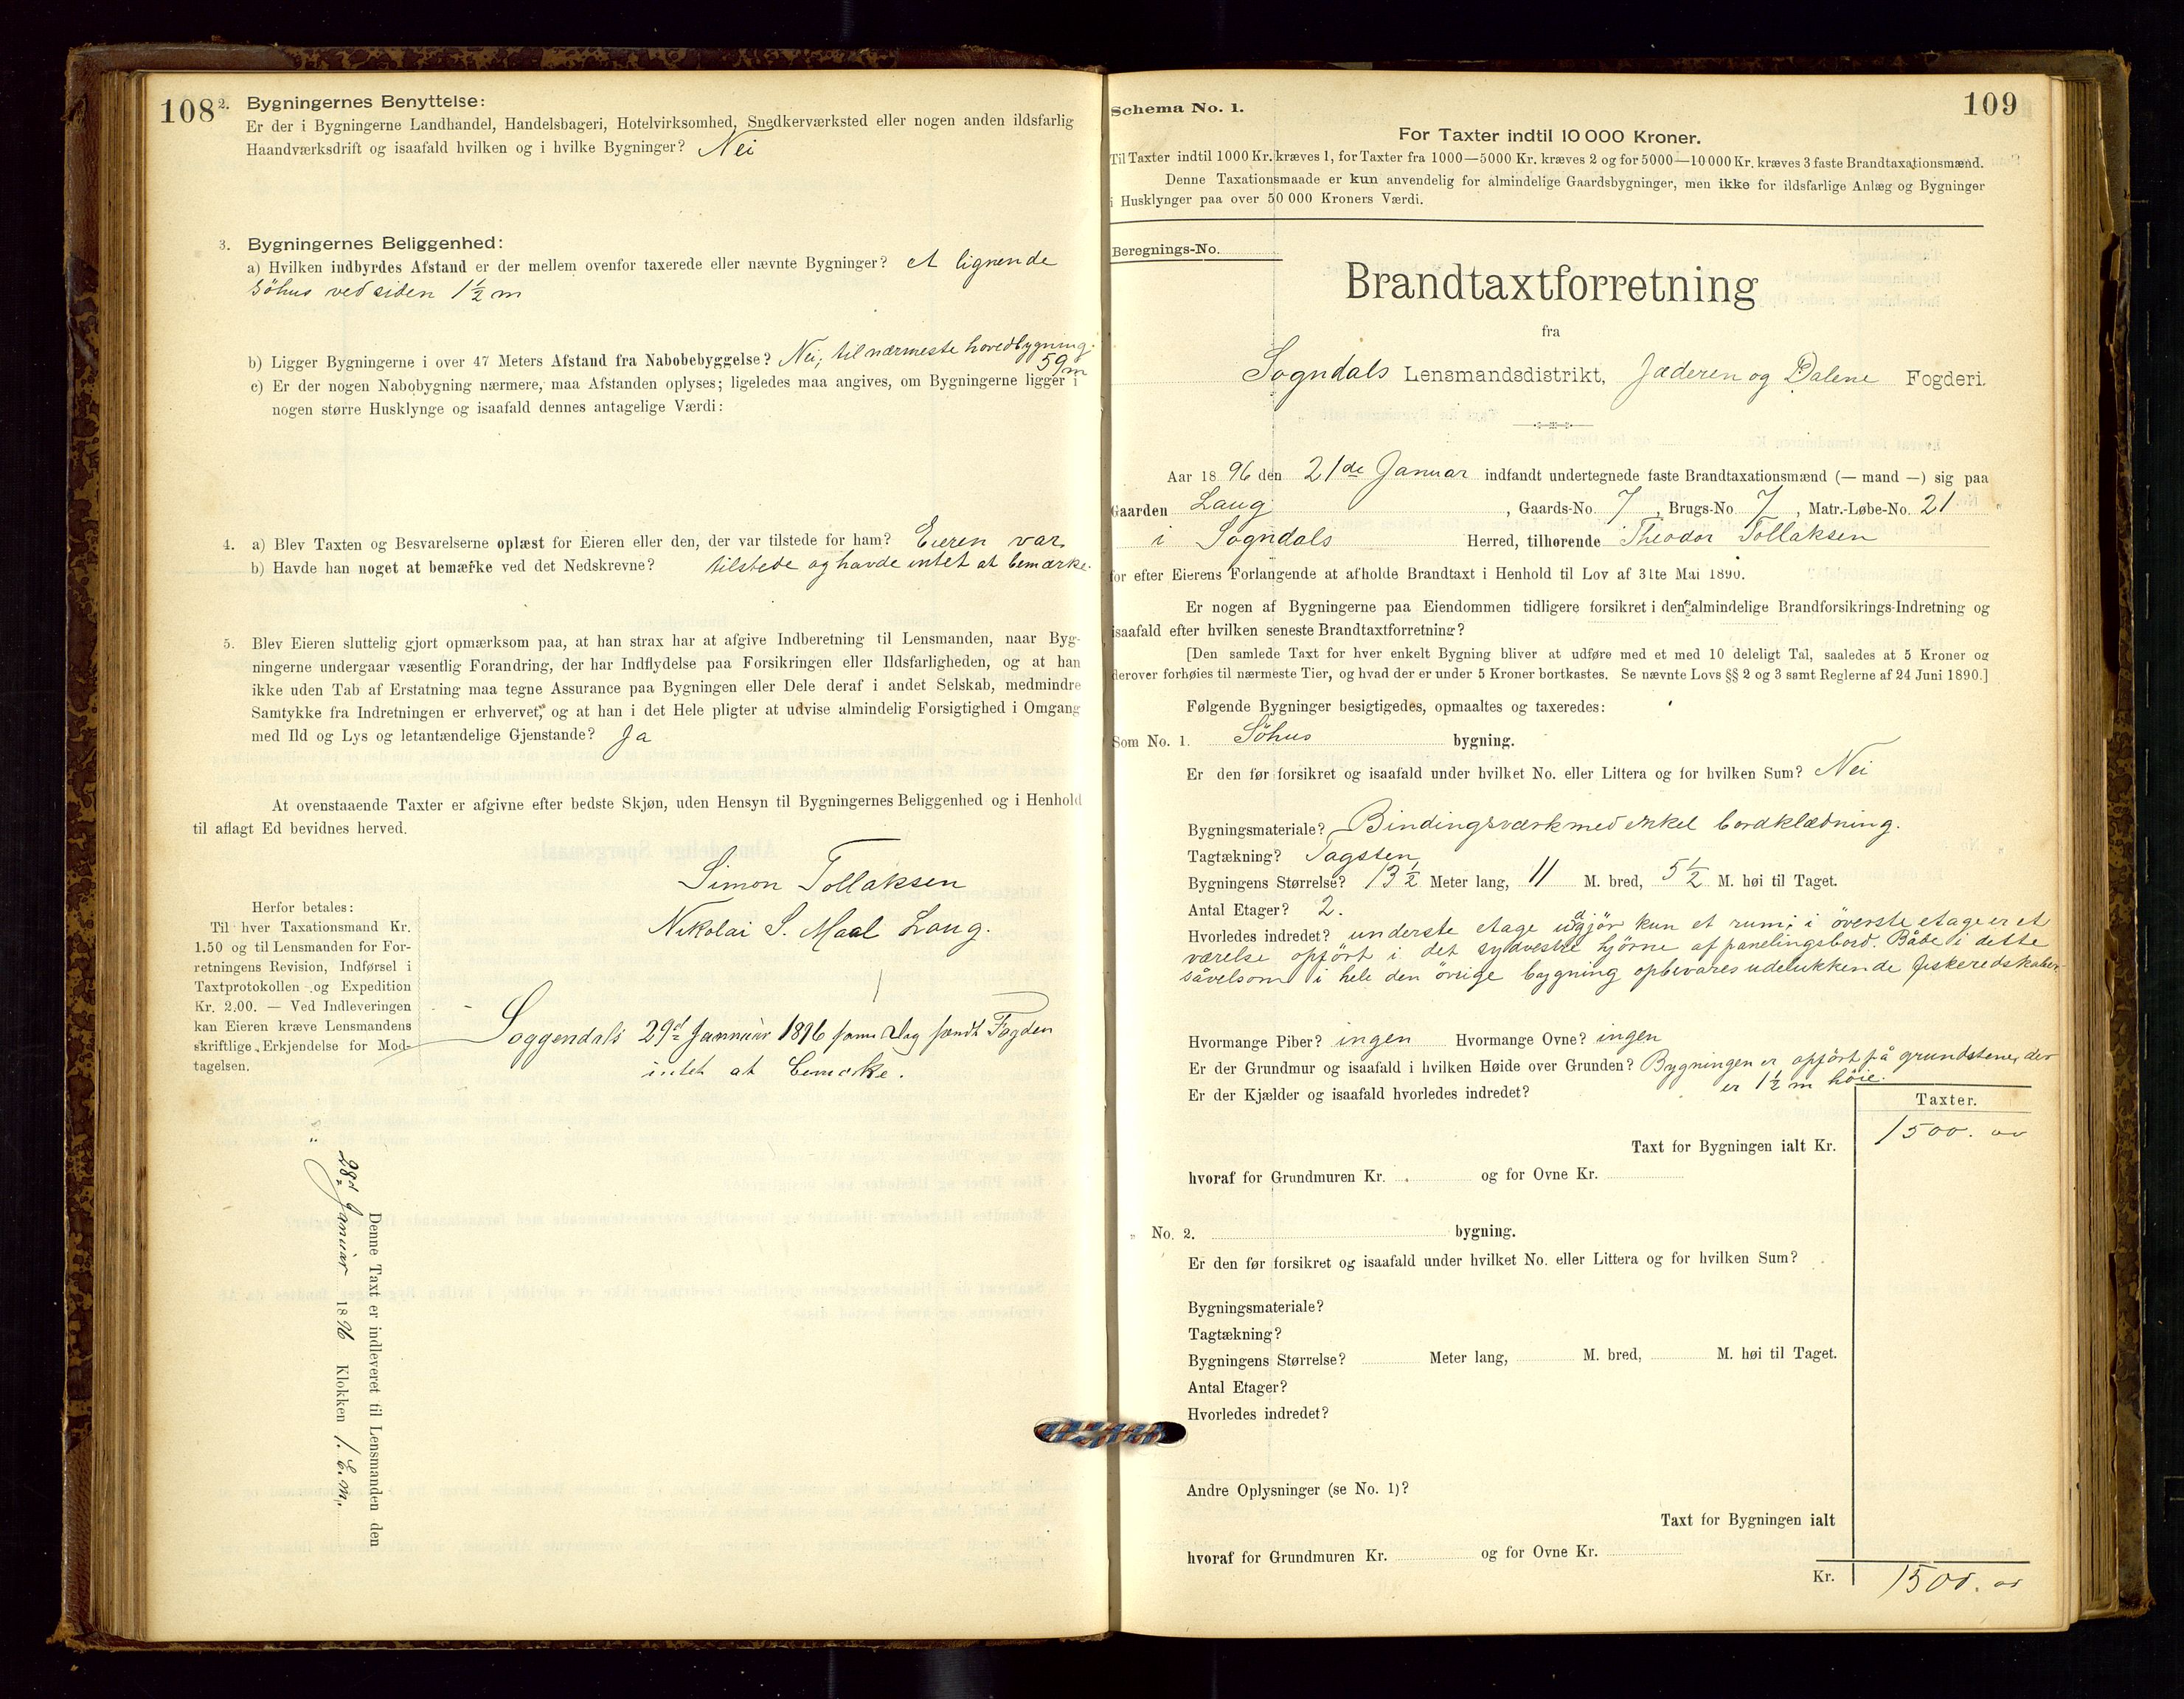 108
2. Bygningernes Benyttelse:
Er der i Bygningerne Landhandel, Handelsbageri, Hotelvirksomhed, Snedkerværksted eller nogen anden ildsfarlig
Haandværksdrift og isaafald hvilken og i hvilke Bygninger? Nei
3. Bygningernes Beliggenhed:
a) Hvilken indbyrdes Afstand er der mellem ovenfor taxerede eller nævnte Bygninger? et lignende
söhus ved siden 1½ m
b) Ligger Bygningerne i over 47 Meters Afstand fra Nabobebyggelse? Nei, til nærmeste hovedbygning
59 m
c) Er der nogen Nabobygning nærmere, maa Afstanden oplyses; ligeledes maa angives, om Bygningerne ligger i
nogen større Husklynge og isaafald dennes antagelige Værdi:
4. a) Blev Taxten og Besvarelserne oplæst for Eieren eller den, der var tilstede for ham? Eieren var
b) Havde han noget at bemærke ved det Nedskrevne? tilstede og havde intet at bemærke.
5. Blev Eieren sluttelig gjort opmærksom paa, at han strax har at afgive Indberetning til Lensmanden, naar Byg-
ningerne undergaar væsentlig Forandring, der har Indflydelse paa Forsikringen eller Ildsfarligheden, og at han
ikke uden Tab af Erstatning maa tegne Assurance paa Bygningen eller Dele deraf i andet Selskab, medmindre
Samtykke fra Indretningen er erhvervet, og at han i det Hele pligter at udvise almindelig Forsigtighed i Omgang
med Ild og Lys og letantændelige Gjenstande? Ja
At ovenstaaende Taxter er afgivne efter bedste Skjøn, uden Hensyn til Bygningernes Beliggenhed og i Henhold
til aflagt Ed bevidnes herved.
Simon Tollaksen
Nikolai S. Maal Laug.
Herfor betales:
Til hver Taxationsmand Kr.
1.50 og til Lensmanden for For-
retningens Revision, Indførsel i
Taxtprotokollen og Expedition
Kr. 2.00. — Ved Indleveringen
kan Eieren kræve Lensmandens
skriftlige Erkjendelse for Mod-
tagelsen.
Soggendals 29d Januar 1896 samme Dag sendt Fogden
intet at bemærke.
Denne Taxt er indleveret til Lensmanden den
28d Januar 1896 Klokken 1. E.m.
109
Schema No. 1.
For Taxter indtil 10 000 Kroner.
Til Taxter indtil 1000 Kr. kræves 1, for Taxter fra 1000—5000 Kr. kræves 2 og for 5000—10 000 Kr. kræves 3 faste Brandtaxationsmænd.
Denne Taxationsmaade er kun anvendelig for almindelige Gaardsbygninger, men ikke for ildsfarlige Anlæg og Bygninger
i Husklynger paa over 50 000 Kroners Værdi.
Beregnings-No.
Brandtaxtforretning
fra
Sogndals Lensmandsdistrikt, Jæderen og Dalene Fogderi.
Aar 1896 den 21de Januar indfandt undertegnede faste Brandtaxationsmænd (— mand —) sig paa
Gaarden Laug, Gaards-No. 7, Brugs-No. 7, Matr.-Løbe-No. 21
i Sogndals Herred, tilhørende Theodor Tollaksen
for efter Eierens Forlangende at afholde Brandtaxt i Henhold til Lov af 31te Mai 1890.
Er nogen af Bygningerne paa Eiendommen tidligere forsikret i den almindelige Brandforsikrings-Indretning og
isaafald efter hvilken seneste Brandtaxtforretning?
[Den samlede Taxt for hver enkelt Bygning bliver at udføre med et med 10 deleligt Tal, saaledes at 5 Kroner og
derover forhøies til nærmeste Tier, og hvad der er under 5 Kroner bortkastes. Se nævnte Lovs §§ 2 og 3 samt Reglerne af 24 Juni 1890.]
Følgende Bygninger besigtigedes, opmaaltes og taxeredes:
Som No. 1. Söhus bygning.
Er den før forsikret og isaafald under hvilket No. eller Littera og for hvilken Sum? Nei
Bygningsmateriale? Bindingsværk med enkel bordklædning.
Tagtækning? Tagsten
Bygningens Størrelse? 13½ Meter lang, 11 M. bred, 5½ M. høi til Taget.
Antal Etager? 2.
Hvorledes indredet? underste etage udgjør kun et rum; i överste etage er et
værelse opført i det sydvestre hjörne af panelingsbord. Både i dette
såvelsom i hele den övrige bygning opbevares udelukkende fiskeredskaber.
Hvormange Piber? ingen Hvormange Ovne? ingen
Er der Grundmur og isaafald i hvilken Høide over Grunden? Bygningen er opført på grundstene, der
er 1½ m høie.
Er der Kjælder og isaafald hvorledes indredet?
Taxter.
Taxt for Bygningen ialt Kr. 1500. 00
hvoraf for Grundmuren Kr. og for Ovne Kr.
" No. 2. bygning.
Er den før forsikret og isaafald under hvilket No. eller Littera og for hvilken Sum?
Bygningsmateriale?
Tagtækning?
Bygningens Størrelse? Meter lang, M. bred, M. høi til Taget.
Antal Etager?
Hvorledes indredet?
Andre Oplysninger (se No. 1)?
Taxt for Bygningen ialt
hvoraf for Grundmuren Kr. og for Ovne Kr.
Kr. 1500. 00